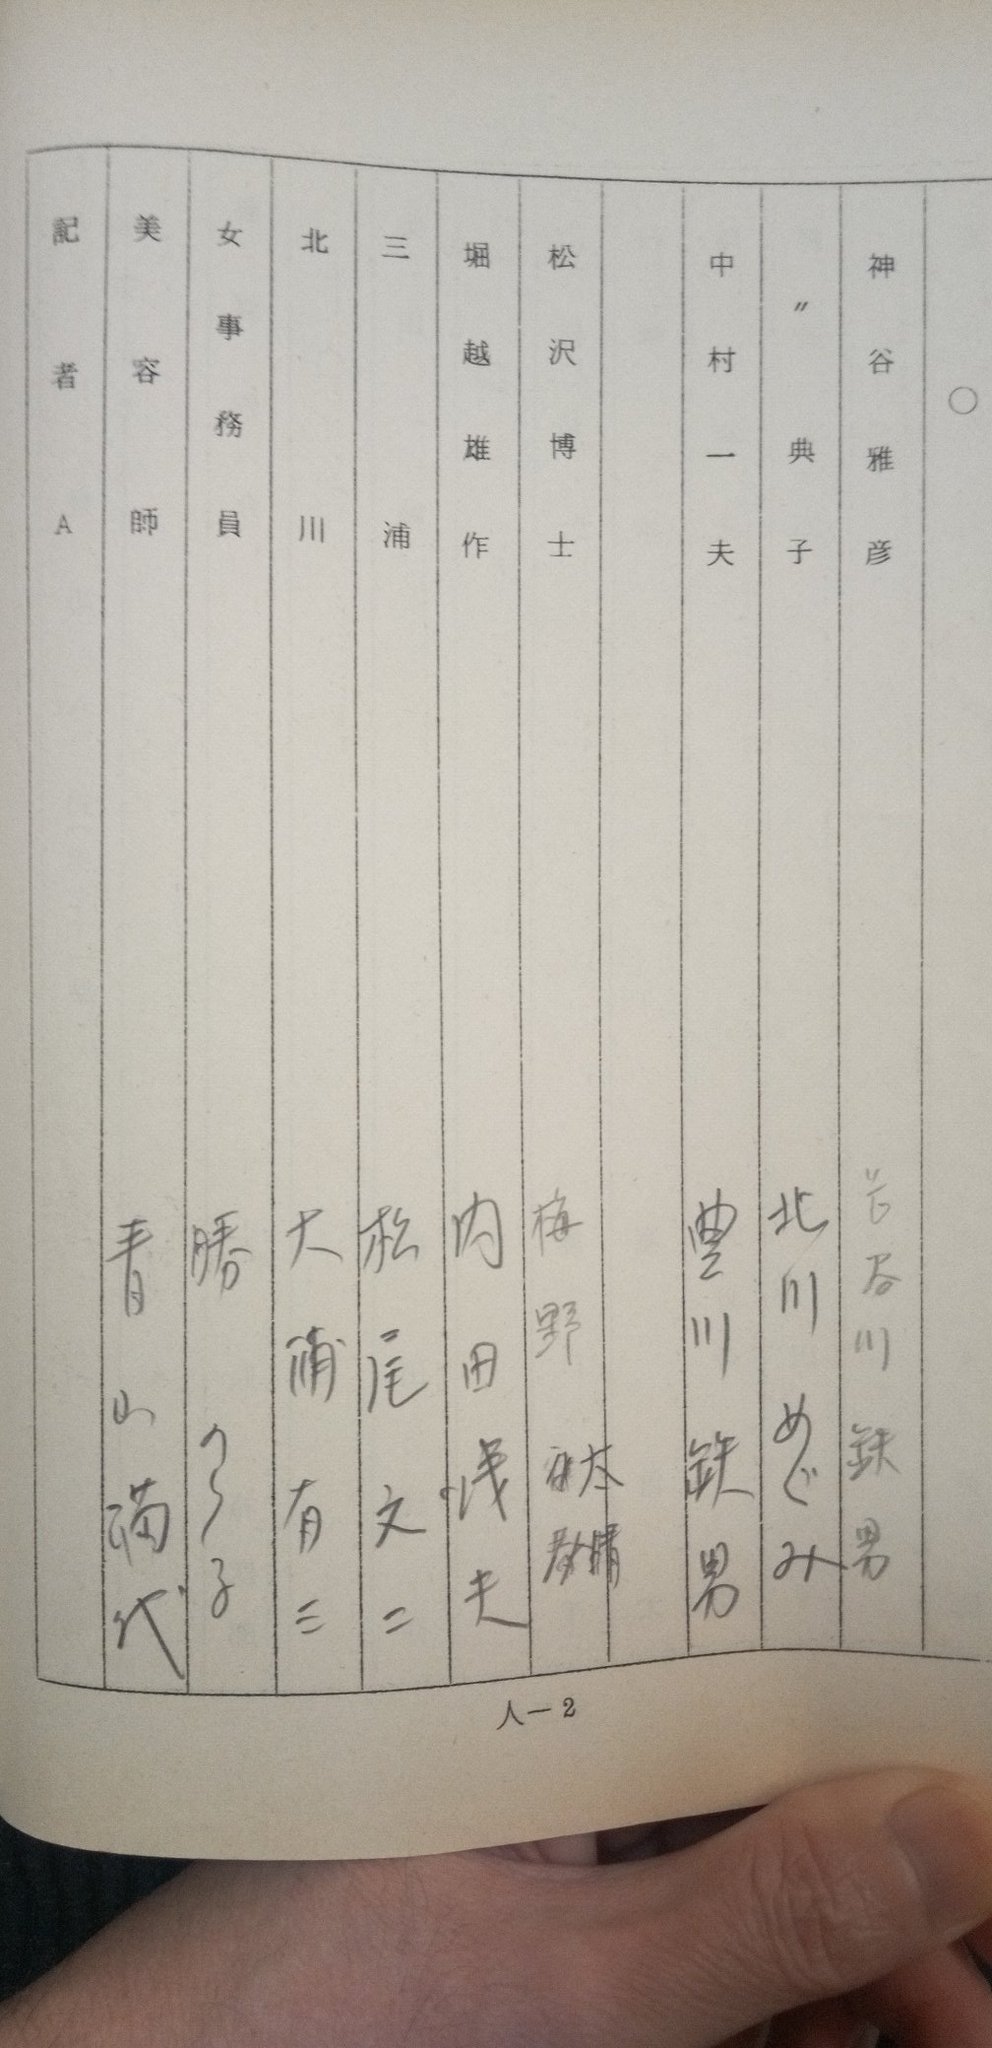 ○
神谷雅彦 長谷川鉄男
〃典子 北川めぐみ
中村一夫 豊川鉄男
松沢博士 梅野
堀越雄作 内田浅夫
三浦 松尾文二
北川 大浦有三
女事務員 勝
美容師 青山満代
記者A
人—2